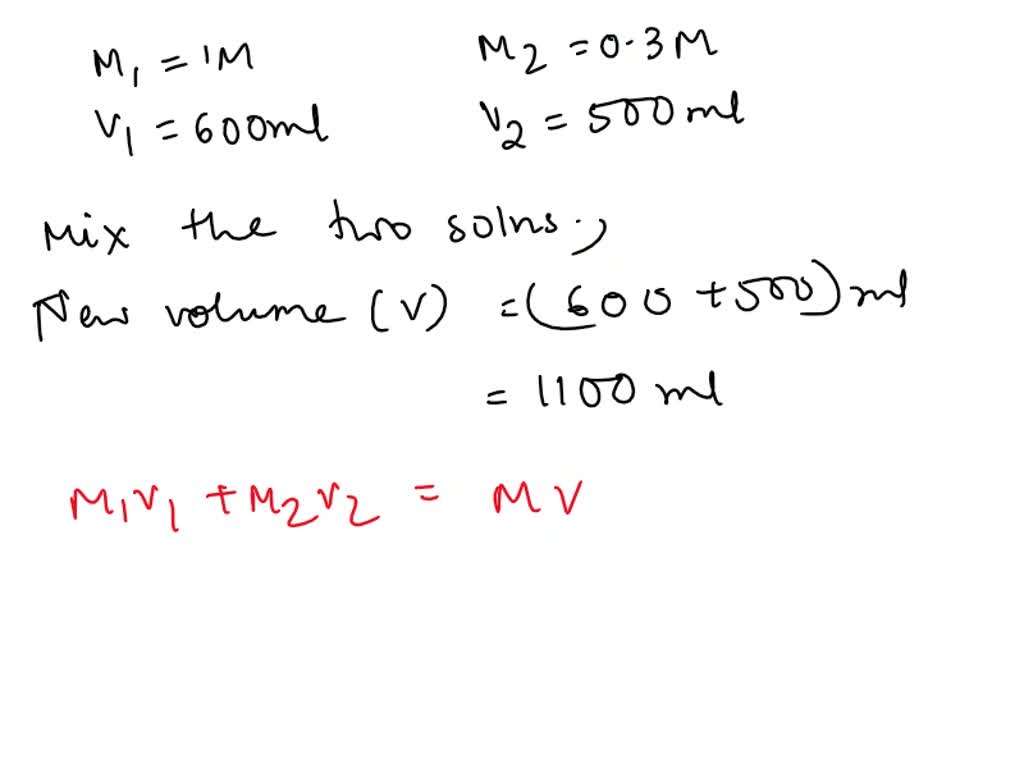 M₁ = 1M M₂ = 0.3M
V₁ = 600ml V₂ = 500ml
Mix the two solns.,
New volume (V) = (600 + 500) ml
= 1100 ml
M₁V₁ + M₂V₂ = MV